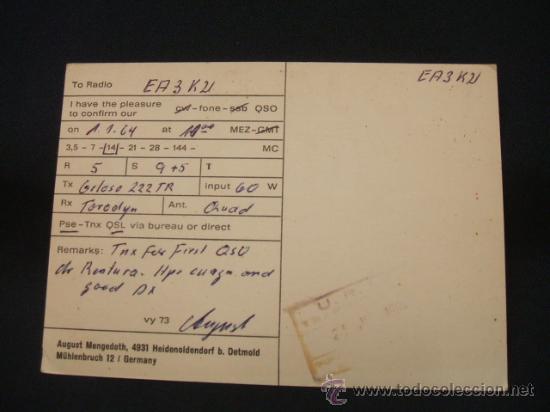 To Radio EA3KU
EA3KU
I have the pleasure cw -fone- ssb QSO
to confirm our
on 1.1.64 at 11⁰⁰ MEZ-GMT
3,5 - 7 - 14 - 21 - 28 - 144 - MC
R 5 S 9+5 T
Tx Geloso 222TR input 60 W
Rx Ant. Quad
Pse-Tnx QSL via bureau or direct
Remarks: Tnx for First QSO
de Hpe cuagn and
good Dx
vy 73 August
August Mengedoth, 4931 Heidenoldendorf b. Detmold
Mühlenbruch 12 / Germany
www.todocoleccion.net